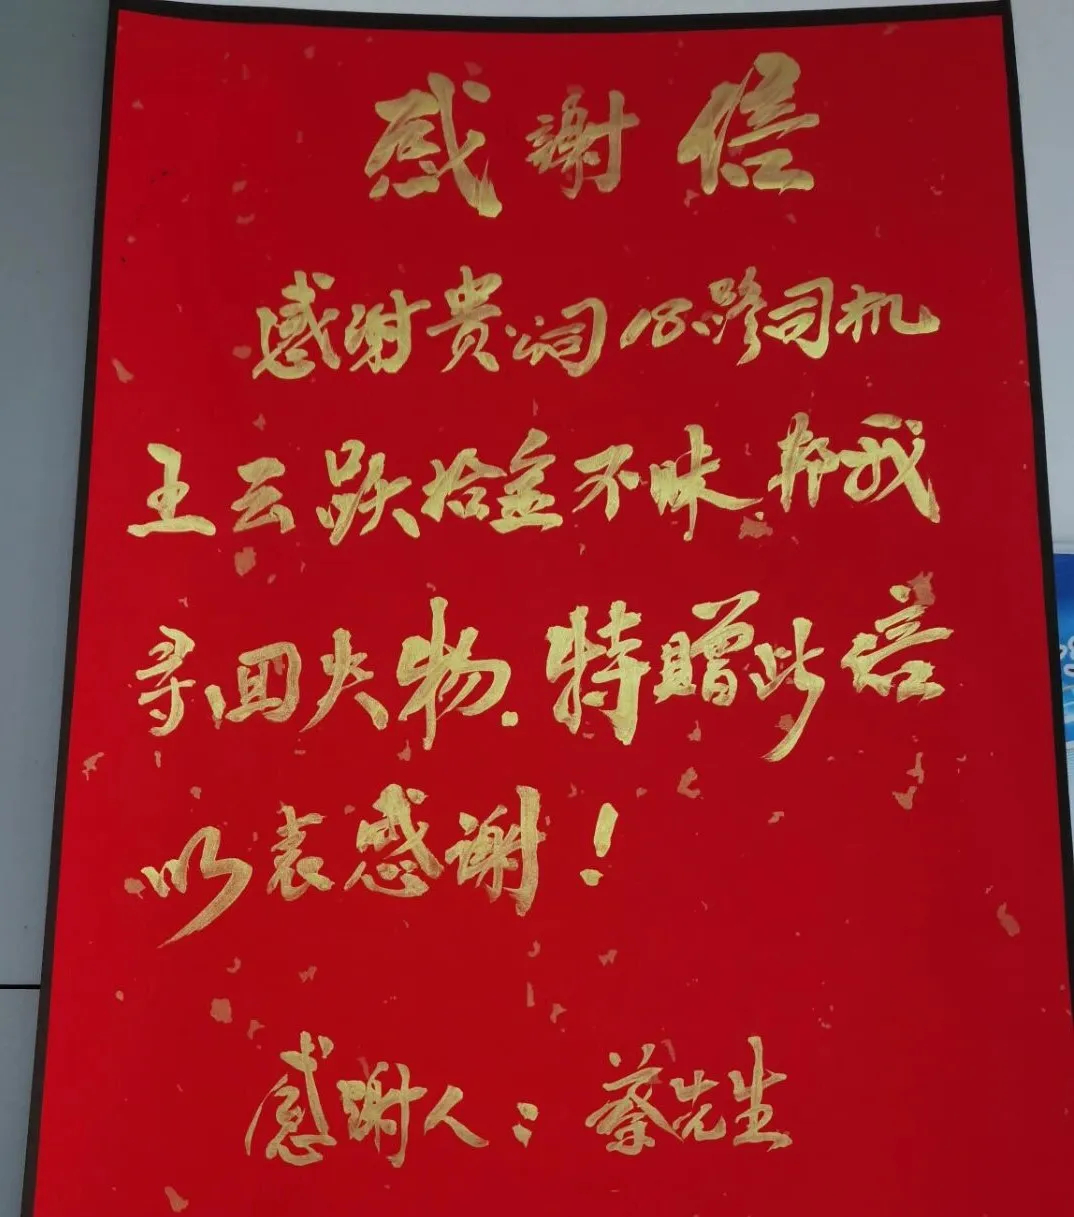 感謝信
感谢贵公司18路司机
王云跃拾金不昧.帮我
寻回失物.特赠此信
以表感谢！
感谢人：蔡先生